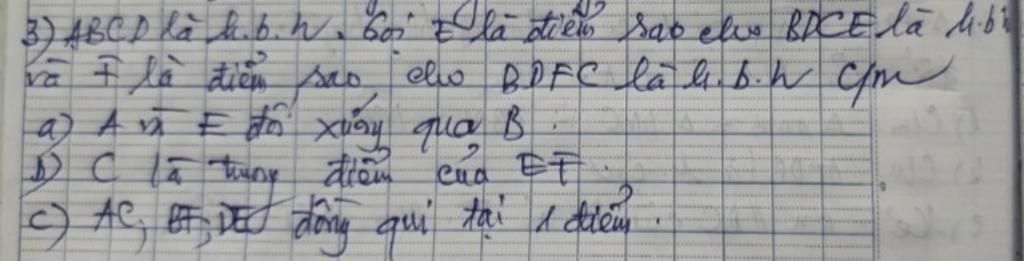 3) ABCD là h.b.h. Gọi E là điểm sao cho BDCE là h.b.h
và F là điểm sao cho BDFC là h.b.h C/m
a) A và E đối xứng qua B.
b) C là trung điểm của EF.
c) AC; BF; DE đồng qui tại 1 điểm.